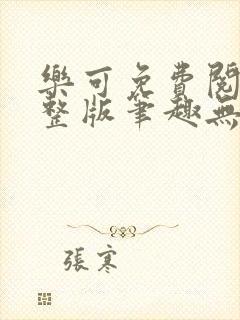 樂可免費閱
整版筆趣無
張寒